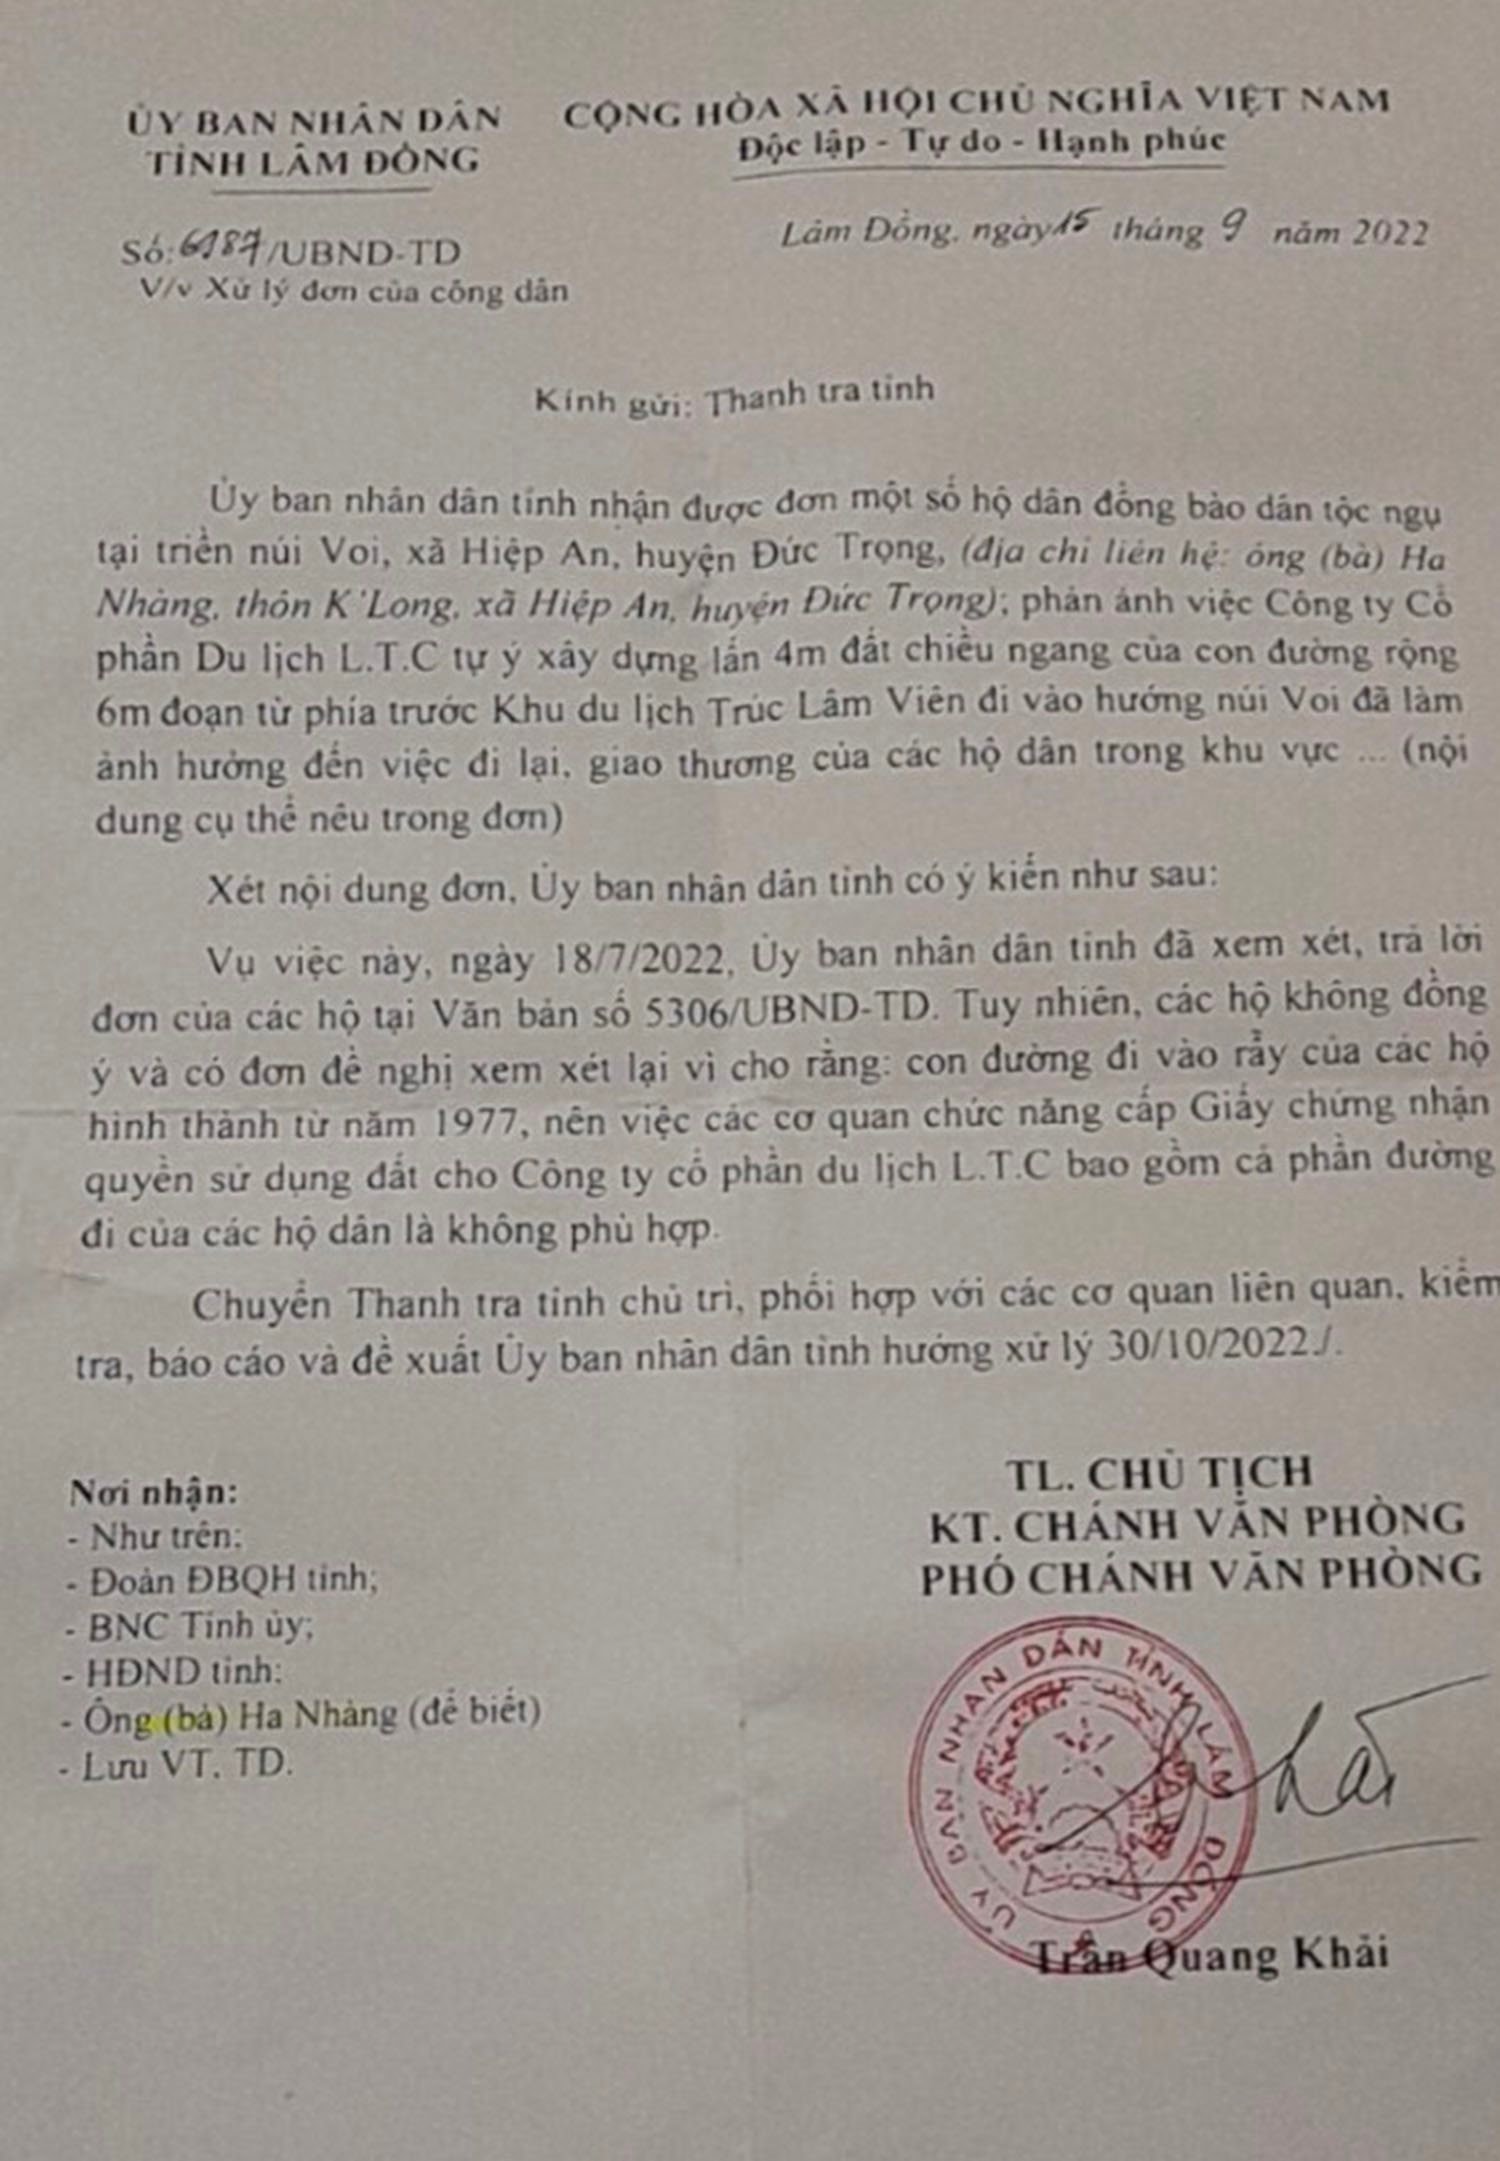 ỦY BAN NHÂN DÂN
TỈNH LÂM ĐỒNG
CỘNG HÒA XÃ HỘI CHỦ NGHĨA VIỆT NAM
Độc lập - Tự do - Hạnh phúc
Số: 6187/UBND-TD
V/v Xử lý đơn của công dân
Lâm Đồng, ngày 15 tháng 9 năm 2022
Kính gửi: Thanh tra tỉnh
Ủy ban nhân dân tỉnh nhận được đơn một số hộ dân đồng bào dân tộc ngụ
tại triền núi Voi, xã Hiệp An, huyện Đức Trọng, (địa chỉ liên hệ: ông (bà) Ha
Nhàng, thôn K'Long, xã Hiệp An, huyện Đức Trọng); phản ánh việc Công ty Cổ
phần Du lịch L.T.C tự ý xây dựng lấn 4m đất chiều ngang của con đường rộng
6m đoạn từ phía trước Khu du lịch Trúc Lâm Viên đi vào hướng núi Voi đã làm
ảnh hưởng đến việc đi lại, giao thương của các hộ dân trong khu vực ... (nội
dung cụ thể nêu trong đơn)
Xét nội dung đơn, Ủy ban nhân dân tỉnh có ý kiến như sau:
Vụ việc này, ngày 18/7/2022, Ủy ban nhân dân tỉnh đã xem xét, trả lời
đơn của các hộ tại Văn bản số 5306/UBND-TD. Tuy nhiên, các hộ không đồng
ý và có đơn đề nghị xem xét lại vì cho rằng: con đường đi vào rẫy của các hộ
hình thành từ năm 1977, nên việc các cơ quan chức năng cấp Giấy chứng nhận
quyền sử dụng đất cho Công ty cổ phần du lịch L.T.C bao gồm cả phần đường
đi của các hộ dân là không phù hợp.
Chuyển Thanh tra tỉnh chủ trì, phối hợp với các cơ quan liên quan, kiểm
tra, báo cáo và đề xuất Ủy ban nhân dân tỉnh hướng xử lý 30/10/2022./.
Nơi nhận:
- Như trên;
- Đoàn ĐBQH tỉnh;
- BNC Tỉnh ủy;
- HĐND tỉnh;
- Ông (bà) Ha Nhàng (để biết)
- Lưu VT, TD.
TL. CHỦ TỊCH
KT. CHÁNH VĂN PHÒNG
PHÓ CHÁNH VĂN PHÒNG
ỦY BAN NHÂN DÂN TỈNH LÂM ĐỒNG
Trần Quang Khải